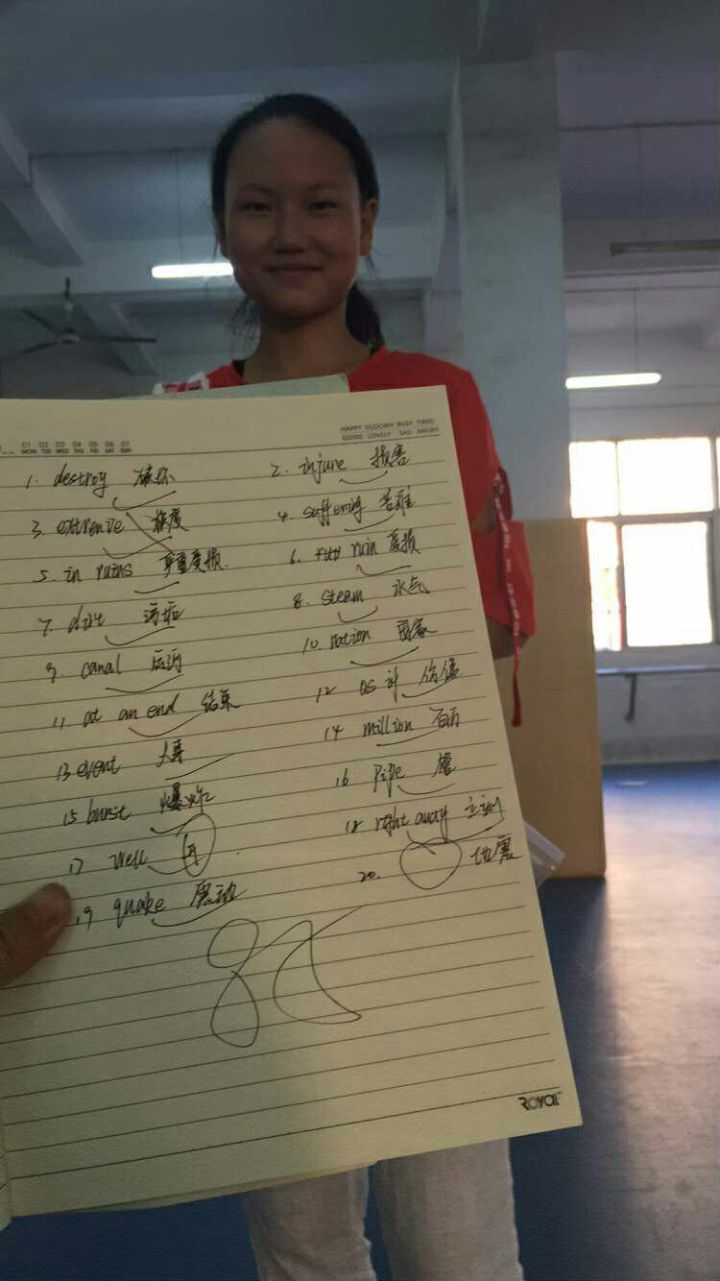 01 02 03 04 05 06 07
MON TUE WED THU FRI SAT SUN
HAPPY GLOOMY BUSY TIRED
GOOD LOVELY SAD ANGRY
1. destroy 破坏
2. injure 损害
3. extreme 极度
4. suffering 苦难
5. in ruins 严重受损
6. ruin 受损
7. dirt 污垢
8. steam 水气
9. canal 运河
10. nation 国家
11. at an end 结束
12 as if
13 event 大事
14 million 百万
15 burst 爆炸
16 pipe 管
17 well 井
18 right away 立刻
19 quake 震动
20. 地震
ROYAL